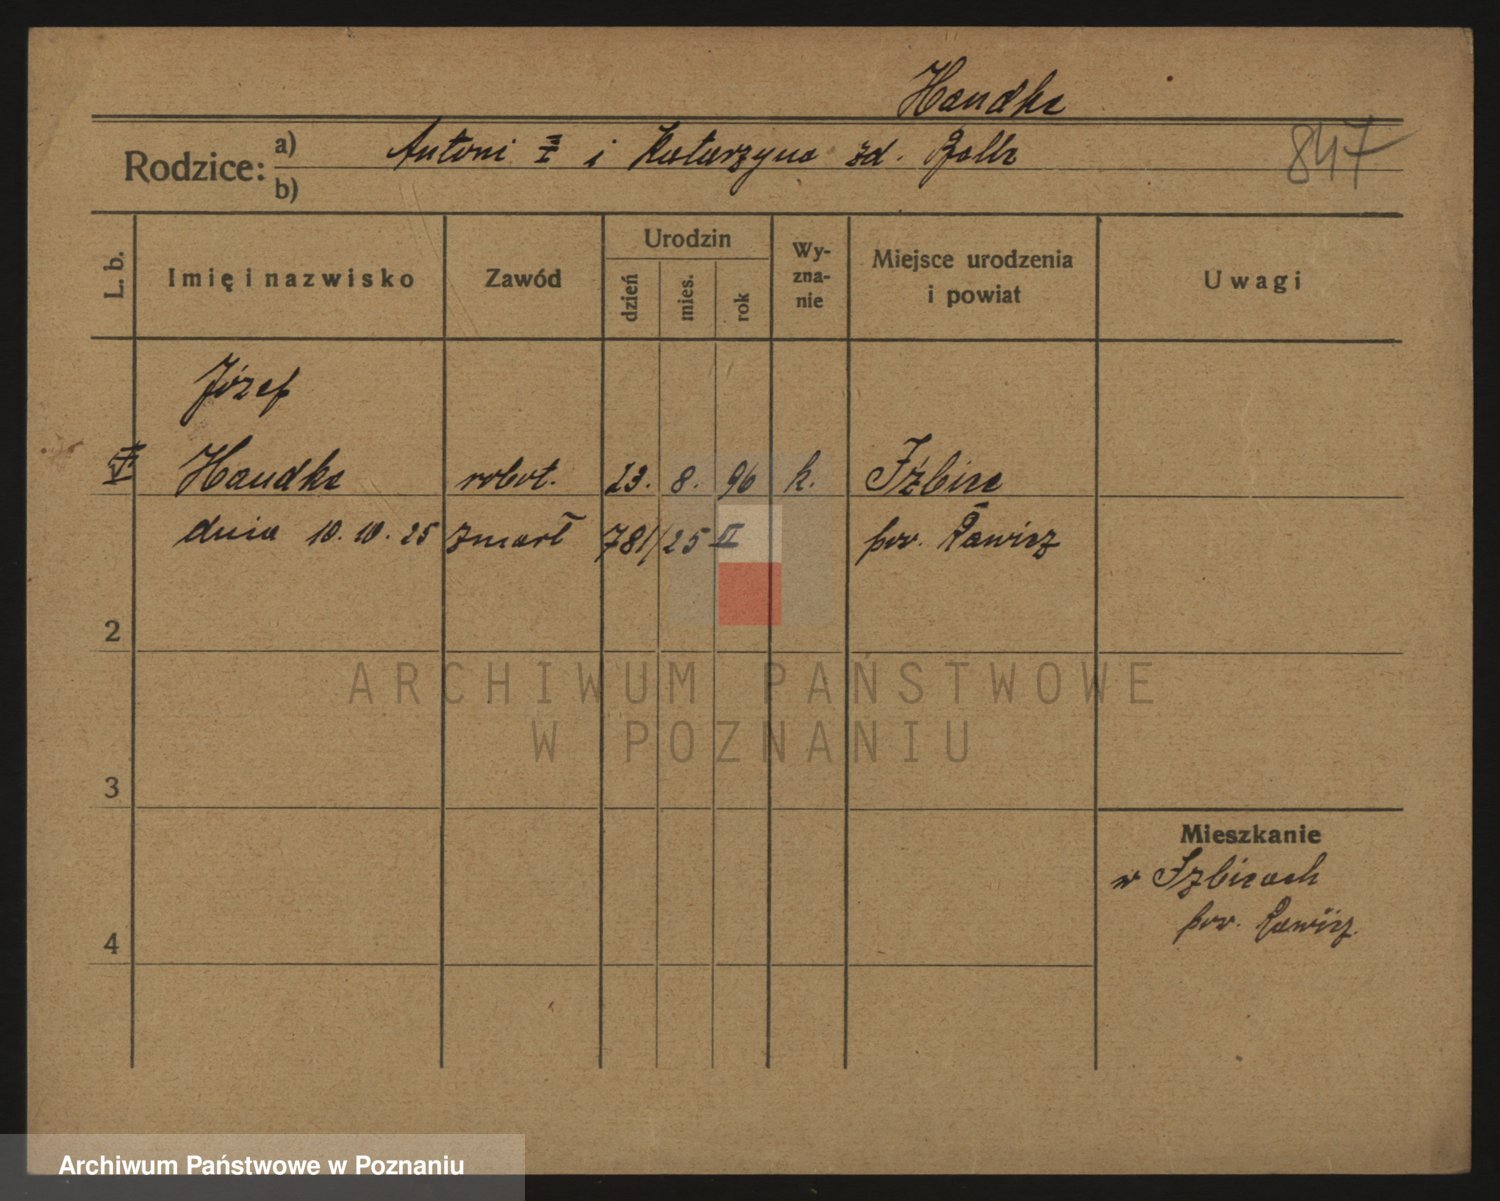 Handke
847
Rodzice: a) Antoni i Katarzyna zd.
b)
L. b. Imię i nazwisko Zawód Urodzin dzień mies. rok Wy-zna-nie Miejsce urodzenia i powiat Uwagi
Józef
Handke robot. 23. 8. 96 k. Izbice
dnia 10. 10. 25 zmarł 781/25 II pow. Rawicz
2
3
4
Mieszkanie
w Izbicach
pow. Rawicz.
ARCHIWUM PAŃSTWOWE
W POZNANIU
Archiwum Państwowe w Poznaniu